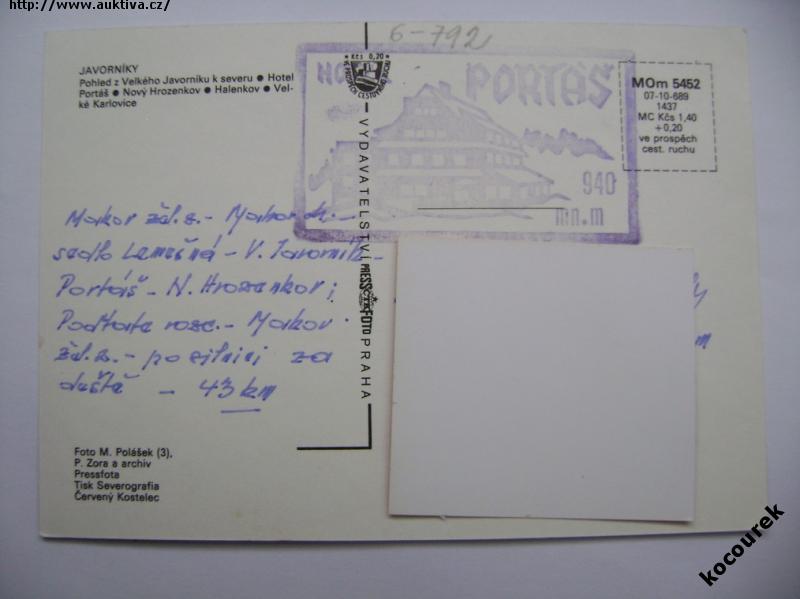 http://www.auktiva.cz/
6-792
JAVORNÍKY
Pohled z Velkého Javorníku k severu ● Hotel
Portáš ● Nový Hrozenkov ● Halenkov ● Vel-
ké Karlovice
Kčs 0,20
HO
PORTÁŠ
940
mn.m
MOm 5452
07-10-689
1437
MC Kčs 1,40
+0,20
ve prospěch
cest. ruchu
VYDAVATELSTVÍ PRESSFOTO PRAHA
Makov žel.z. - Makov
sedlo Lemešná - V. Javorník -
Portáš - N. Hrozenkov;
Podťaté rozc. - Makov
žel.z. - po silnici za
deště - 43 km
Foto M. Polášek (3),
P. Zora a archiv
Pressfota
Tisk Severografia
Červený Kostelec
kocourek